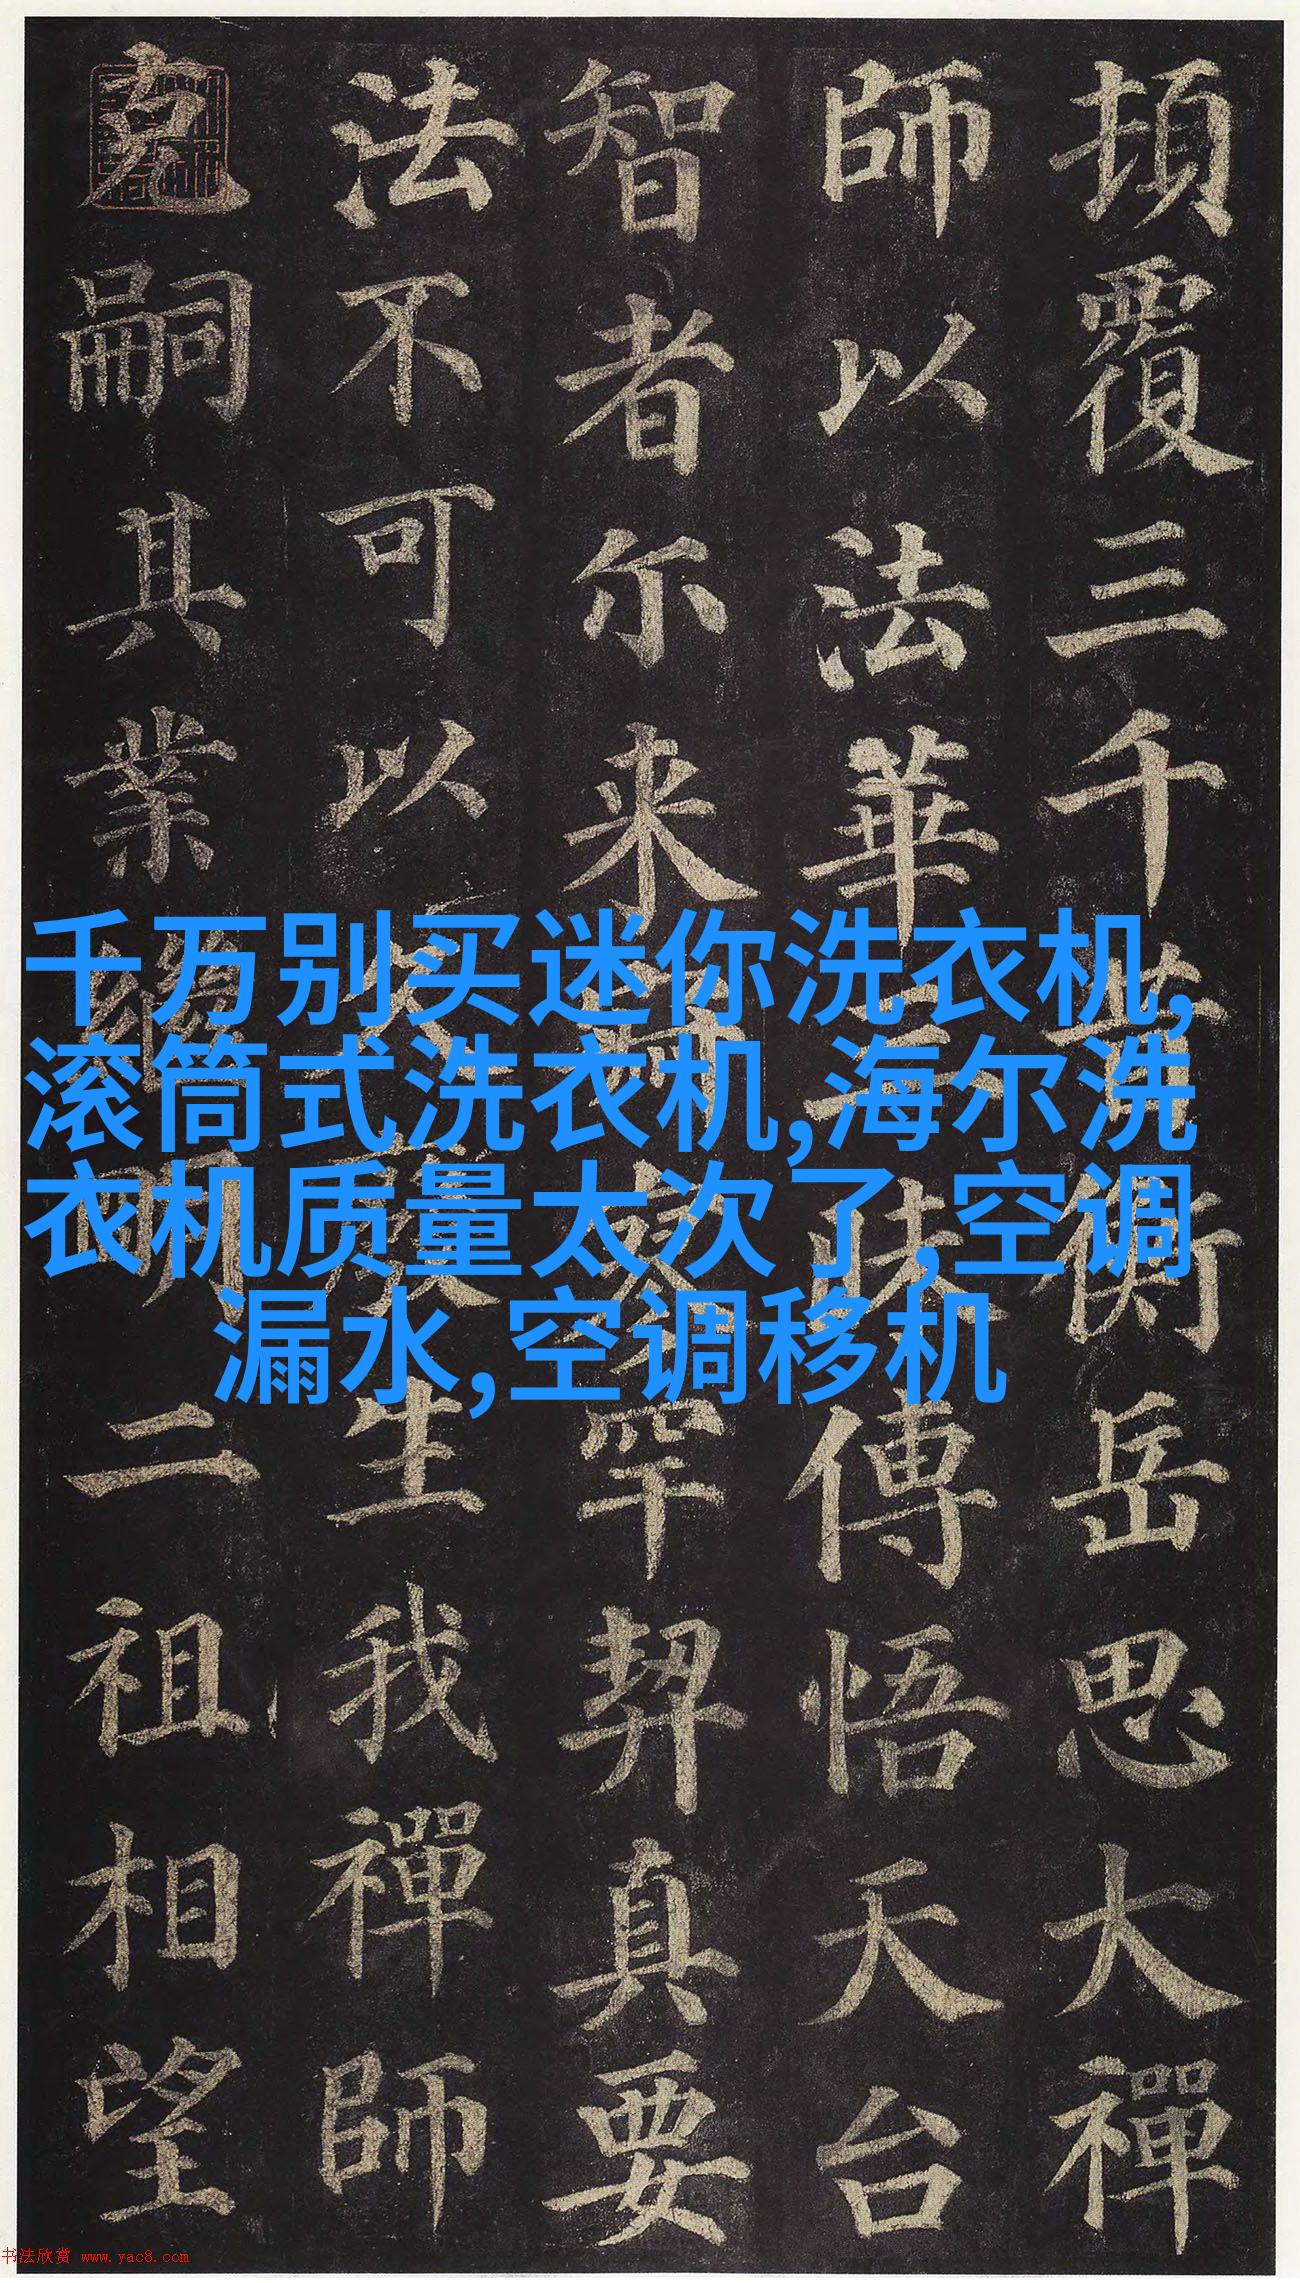 頓覆三千昔衡岳思大禪
師以法華三昧傳悟天台
智者尔来寂寥罕契真要
法不可以久廢生我禪師
克嗣其業繼明二祖相望
千万别买迷你洗衣机,
滚筒式洗衣机,海尔洗
衣机质量太次了,空调
漏水,空调移机
书法欣赏 www.yac8.com